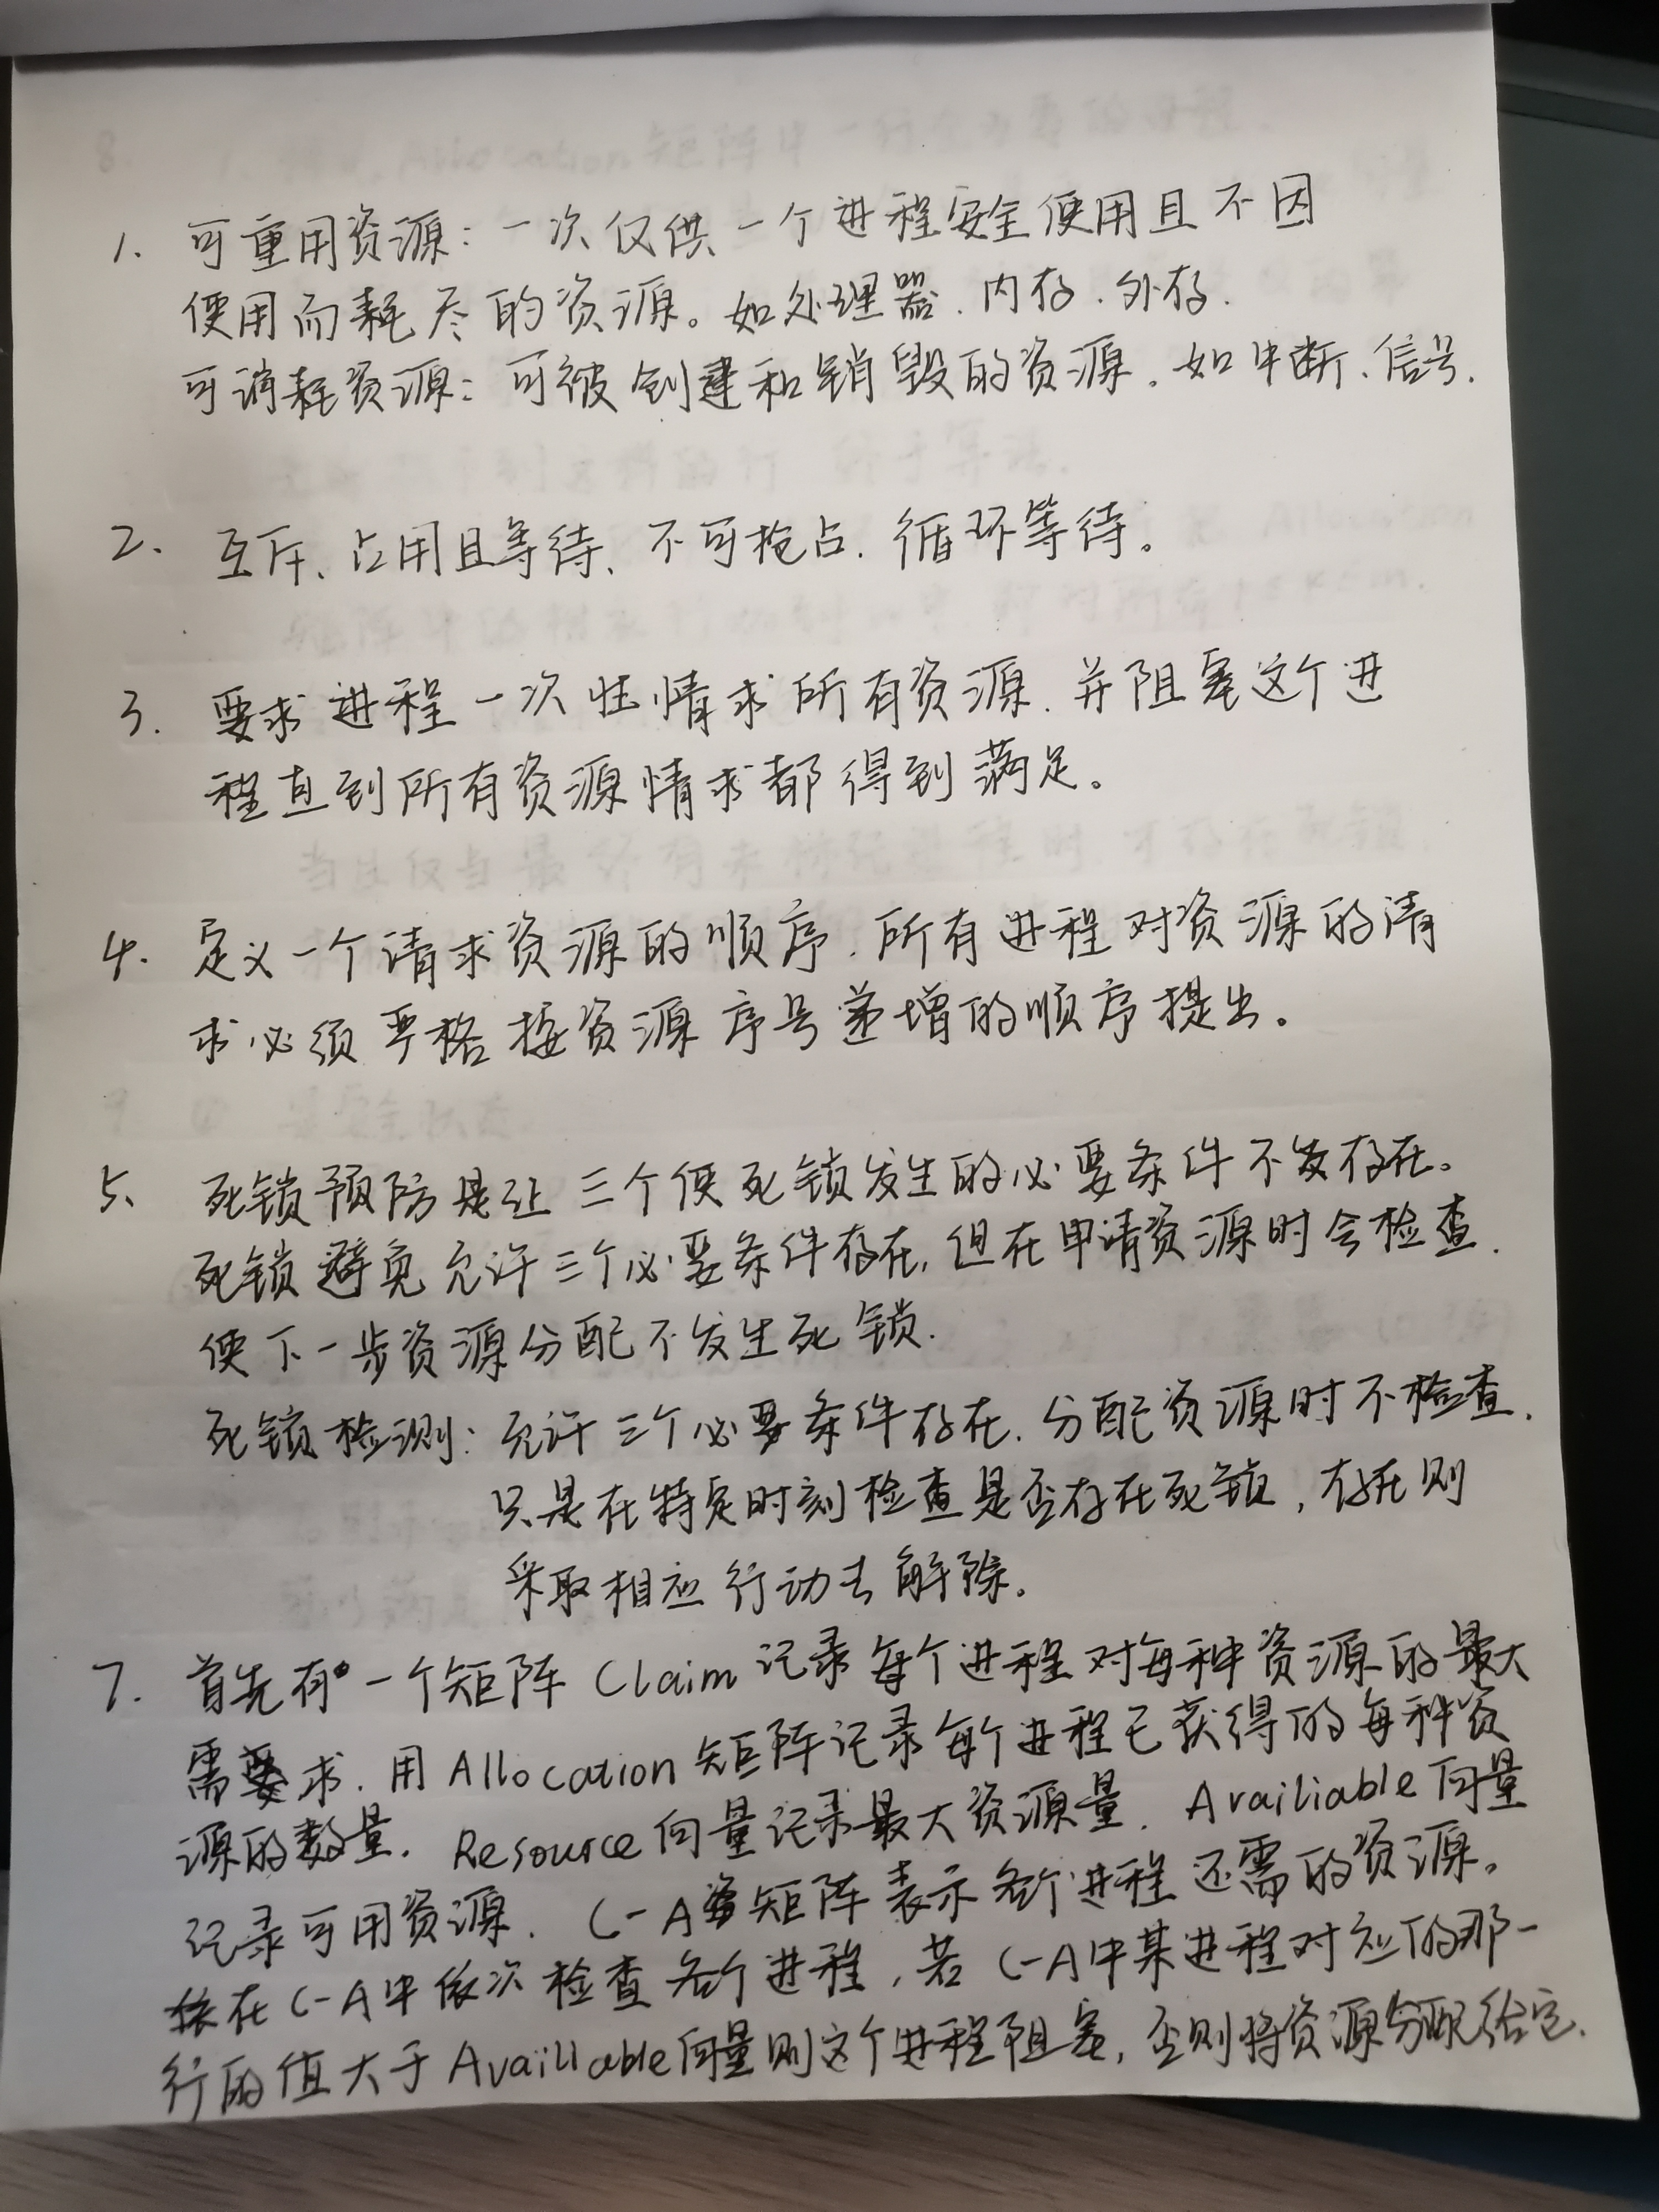 1. 可重用资源：一次仅供一个进程安全使用且不因
使用而耗尽的资源。如处理器、内存、外存.
可消耗资源：可被创建和销毁的资源。如中断、信号.
2、 互斥、占用且等待、不可抢占、循环等待。
3. 要求进程一次性情求所有资源，并阻塞这个进
程直到所有资源情求都得到满足。
4. 定义一个请求资源的顺序，所有进程对资源的请
求必须严格按资源序号递增的顺序提出。
5、 死锁预防是让三个使死锁发生的必要条件不发存在。
死锁避免允许三个必要条件存在，但在申请资源时会检查，
使下一步资源分配不发生死锁.
死锁检测：允许三个必要条件存在，分配资源时不检查，
只是在特定时刻检查是否存在死锁，存在则
采取相应行动去解除。
7. 首先有一个矩阵 Claim 记录每个进程对每种资源的最大
需要求，用 Allocation 矩阵记录每个进程已获得的每种资
源的数量. Resource 向量记录最大资源量. Availiable 向量
记录可用资源. C-A 矩阵表示各个进程还需的资源。
在 C-A 中依次检查各个进程，若 C-A 中某进程对应的那一
行的值大于 Availlable 向量则这个进程阻塞，否则将资源分配给它.